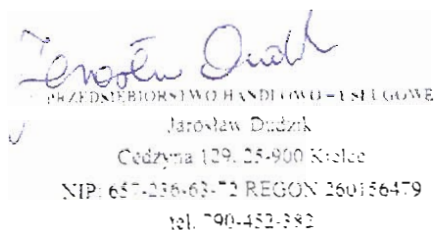 Jarosław Dudzik
PRZEDSIĘBIORSTWO HANDLOWO – USŁUGOWE
Jarosław Dudzik
Cedzyna 129, 25-900 Kielce
NIP: 657-236-63-72 REGON 260156479
tel. 790-452-382